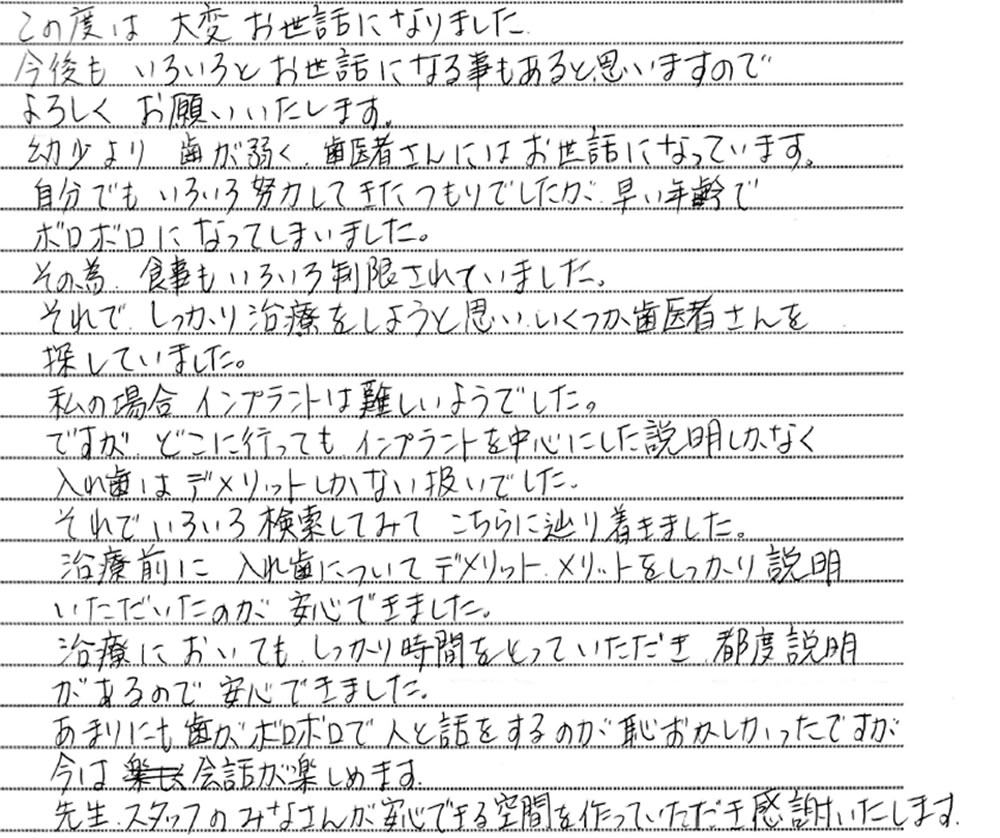 この度は 大変 お世話になりました.
今後も いろいろと お世話になる事もあると思いますので
よろしく お願いいたします。
幼少より 歯が弱く、歯医者さんにはお世話になっています。
自分でも いろいろ努力してきたつもりでしたが、早い年齢で
ボロボロに なってしまいました。
その為、食事もいろいろ制限されていました。
それで、しっかり治療をしようと思い、いくつか歯医者さんを
探していました。
私の場合 インプラントは難しいようでした。
ですが、どこに行っても インプラントを中心にした説明しかなく
入れ歯は デメリットしかない扱いでした.
それで いろいろ 検索してみて こちらに辿り着きました。
治療前に 入れ歯について デメリット、メリットをしっかり説明
いただいたのが 安心できました。
治療に おいても、しっかり時間をとっていただき、都度説明
があるので 安心できました。
あまりにも歯がボロボロで 人と話をするのが恥おかしかったですが
今は 会話が楽しめます.
先生、スタッフのみなさんが安心できる空間を作っていただき感謝いたします.